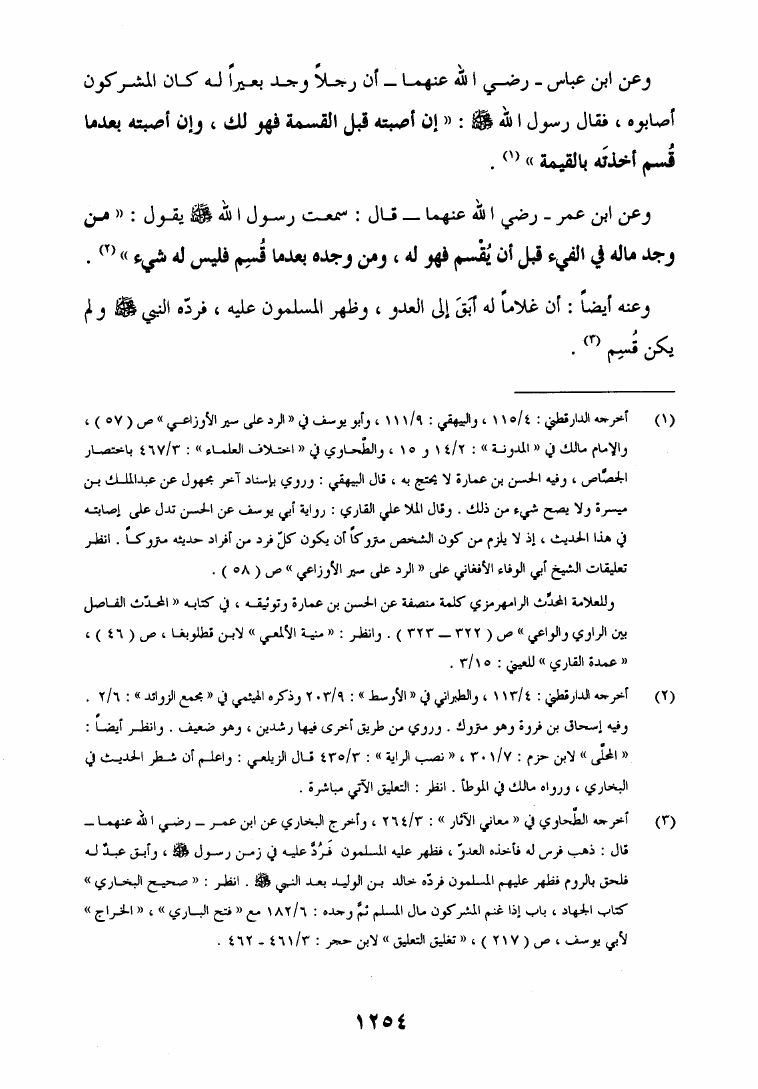 وعن ابن عباس - رضي الله عنهما - أن رجلاً وجد بعيراً له كان المشركون
أصابوه ، فقال رسول الله ﷺ : « إن أصبته قبل القسمة فهو لك ، وإن أصبته بعدما
قُسم أخذتَه بالقيمة » (١) .
وعن ابن عمر - رضي الله عنهما - قال : سمعت رسول الله ﷺ يقول : « من
وجد ماله في الفيء قبل أن يُقْسم فهو له ، ومن وجده بعدما قُسِم فليس له شيء » (٢) .
وعنه أيضاً : أن غلاماً له أَبَقَ إلى العدو ، وظهر المسلمون عليه ، فردّه النبي ﷺ ولم
يكن قُسِم (٣) .
(١) أخرجه الدارقطني : ١١٥/٤ ، والبيهقي : ١١١/٩ ، وأبو يوسف في « الرد على سير الأوزاعي » ص ( ٥٧ ) ،
والإمام مالك في « المدونة » : ١٤/٢ و ١٥ ، والطّحاوي في « اختلاف العلماء » : ٤٦٧/٣ باختصار
الجصّاص ، وفيه الحسن بن عمارة لا يحتج به ، قال البيهقي : وروي بإسناد آخر مجهول عن عبدالملك بن
ميسرة ولا يصح شيء من ذلك . وقال الملا علي القاري : رواية أبي يوسف عن الحسن تدل على إصابته
في هذا الحديث ، إذ لا يلزم من كون الشخص متروكاً أن يكون كلّ فرد من أفراد حديثه متروكاً . انظر
تعليقات الشيخ أبي الوفاء الأفغاني على « الرد على سير الأوزاعي » ص ( ٥٨ ) .
وللعلامة المحدّث الرامهرمزي كلمة منصفة عن الحسن بن عمارة وتوثيقه ، في كتابه « المحدّث الفاصل
بين الراوي والواعي » ص ( ٣٢٢ - ٣٢٣ ) . وانظر : « منية الألمعي » لابن قطلوبغا ، ص ( ٤٦ ) ،
« عمدة القاري » للعيني : ٣/١٥ .
(٢) أخرجه الدارقطني : ١١٣/٤ ، والطبراني في « الأوسط » : ٢٠٣/٩ وذكره الهيثمي في « مجمع الزوائد » : ٢/٦ .
وفيه إسحاق بن فروة وهو متروك . وروي من طريق أخرى فيها رشدين ، وهو ضعيف . وانظر أيضاً :
« المحلّى » لابن حزم : ٣٠١/٧ ، « نصب الراية » : ٤٣٥/٣ قال الزيلعي : واعلم أن شطر الحديث في
البخاري ، ورواه مالك في الموطأ . انظر : التعليق الآتي مباشرة .
(٣) أخرجه الطّحاوي في « معاني الآثار » : ٢٦٤/٣ ، وأخرج البخاري عن ابن عمر - رضي الله عنهما -
قال : ذهب فرس له فأخذه العدوّ ، فظهر عليه المسلمون فَرُدَّ عليه في زمن رسول ﷺ ، وأبق عبدٌ له
فلحق بالروم فظهر عليهم المسلمون فردّه خالد بن الوليد بعد النبي ﷺ . انظر : « صحيح البخاري »
كتاب الجهاد ، باب إذا غنم المشركون مال المسلم ثمَّ وحده : ١٨٢/٦ مع « فتح الباري » ، « الخراج »
لأبي يوسف ، ص ( ٢١٧ ) ، « تغليق التعليق » لابن حجر : ٤٦١/٣ - ٤٦٢ .
١٢٥٤